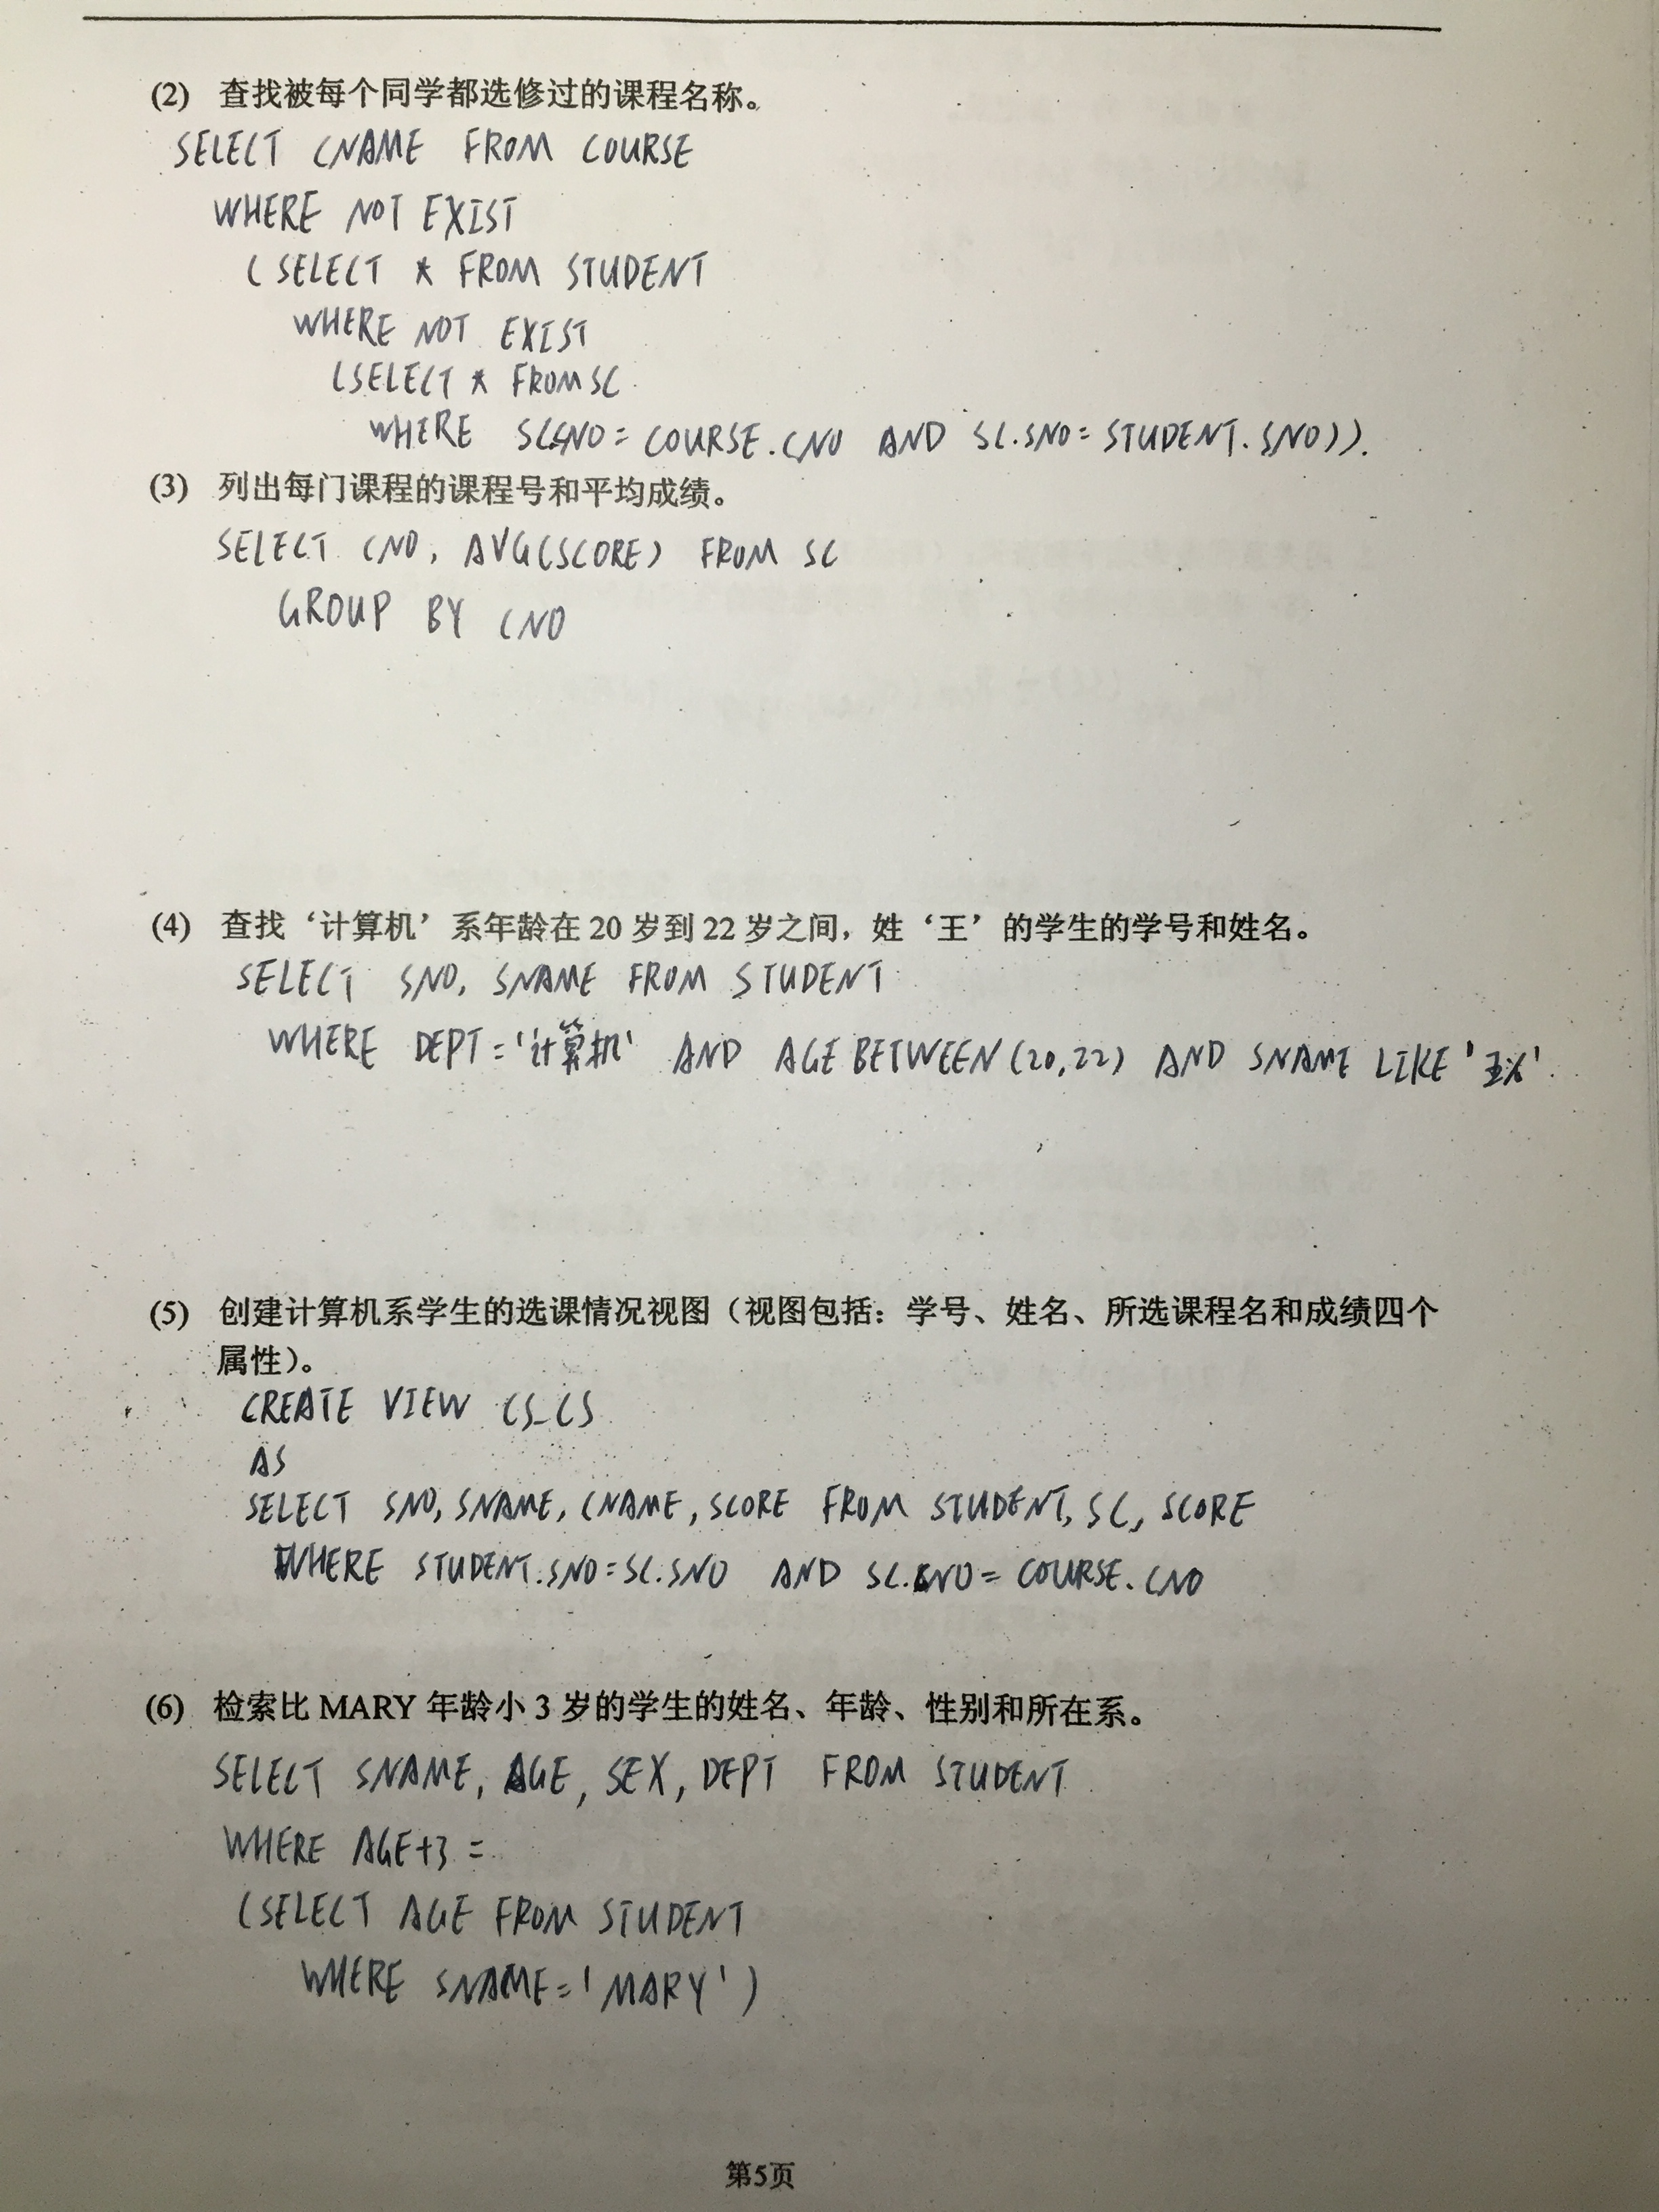 (2) 查找被每个同学都选修过的课程名称。
SELECT CNAME FROM COURSE
WHERE NOT EXIST
(SELECT * FROM STUDENT
WHERE NOT EXIST
(SELECT * FROM SC
WHERE SC.SNO = COURSE.CNO AND SC.SNO = STUDENT.SNO)).
(3) 列出每门课程的课程号和平均成绩。
SELECT CNO, AVG(SCORE) FROM SC
GROUP BY CNO
(4) 查找‘计算机’系年龄在 20 岁到 22 岁之间，姓‘王’的学生的学号和姓名。
SELECT SNO, SNAME FROM STUDENT
WHERE DEPT = '计算机' AND AGE BETWEEN (20,22) AND SNAME LIKE '王%'
(5) 创建计算机系学生的选课情况视图（视图包括：学号、姓名、所选课程名和成绩四个
属性）。
CREATE VIEW CS_CS
AS
SELECT SNO, SNAME, CNAME, SCORE FROM STUDENT, SC, SCORE
WHERE STUDENT.SNO = SC.SNO AND SC.CNO = COURSE.CNO
(6) 检索比 MARY 年龄小 3 岁的学生的姓名、年龄、性别和所在系。
SELECT SNAME, AGE, SEX, DEPT FROM STUDENT
WHERE AGE+3 =
(SELECT AGE FROM STUDENT
WHERE SNAME = 'MARY')
第5页